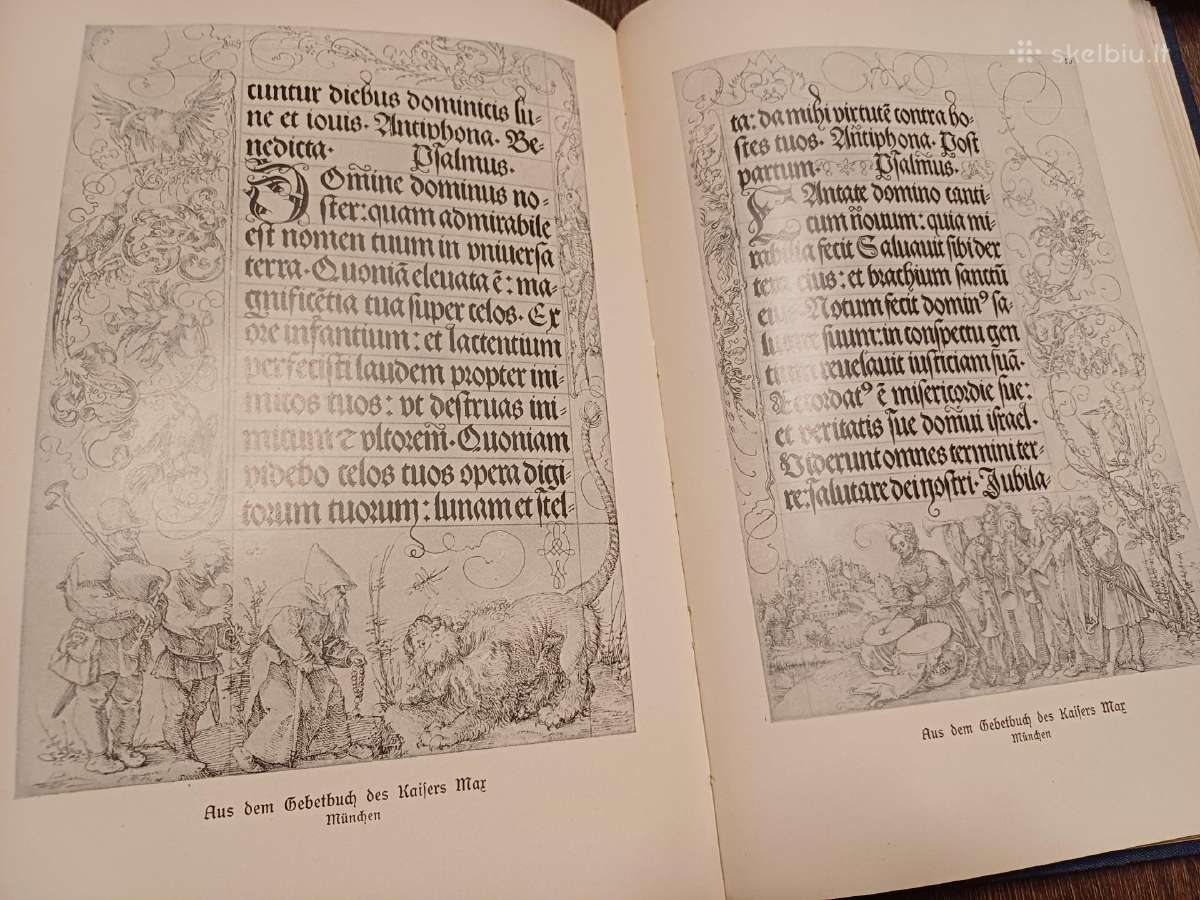 cuntur diebus dominicis lu-
ne et iouis. Antiphona. Be-
nedicta. Psalmus.
DOmine dominus no-
ster: quam admirabile
est nomen tuum in vniuersa
terra. Quoniā eleuata ē: ma-
gnificētia tua super celos. Ex
ore infantium: et lactentium
perfecisti laudem propter ini-
micos tuos: vt destruas ini-
micum et vltorem. Quoniam
videbo celos tuos opera digi-
torum tuorum: lunam et stel-
Aus dem Gebetbuch des Kaisers Max
München
ta: da mihi virtutē contra ho-
stes tuos. Antiphona. Post
partum. Psalmus.
CAntate domino canti-
cum nouum: quia mi-
rabilia fecit Saluauit sibi dex
tera eius: et brachium sanctū
eius. Notum fecit dominꝰ sa-
lutare suum: in conspectu gen
tium reuelauit iusticiam suā.
Recordatꝰ ē misericordie sue:
et veritatis sue domui israel.
Viderunt omnes termini ter-
re: salutare dei nostri. Jubila-
Aus dem Gebetbuch des Kaisers Max
München
skelbiu.lt